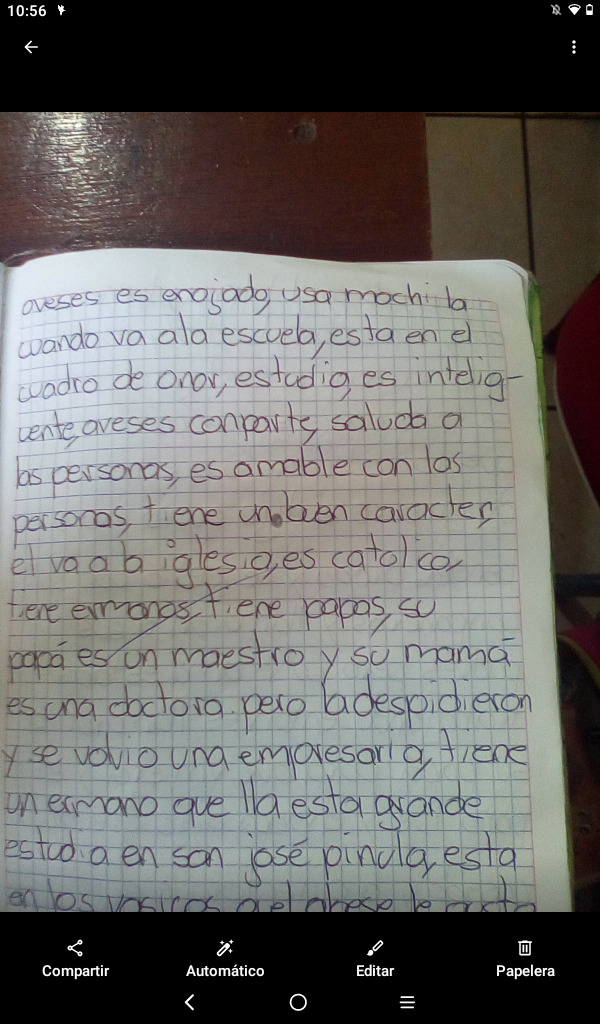 10:56
aveses es enojado, usa mochila
cuando va ala escuela, esta en el
cuadro de onor, estudia, es intelig-
cente, aveses conparte, saluda a
las personas, es amable con las
personas, tiene un buen caracter,
el va a la iglesia, es catolico,
tiene ermanos, tiene papas, su
papá es un maestro y su mamá
es una doctora. pero la despidieron
y se volvio una empresaria, tiene
un ermano que lla esta grande
estudia en san josé pinula, esta
en los
Compartir
Automático
Editar
Papelera